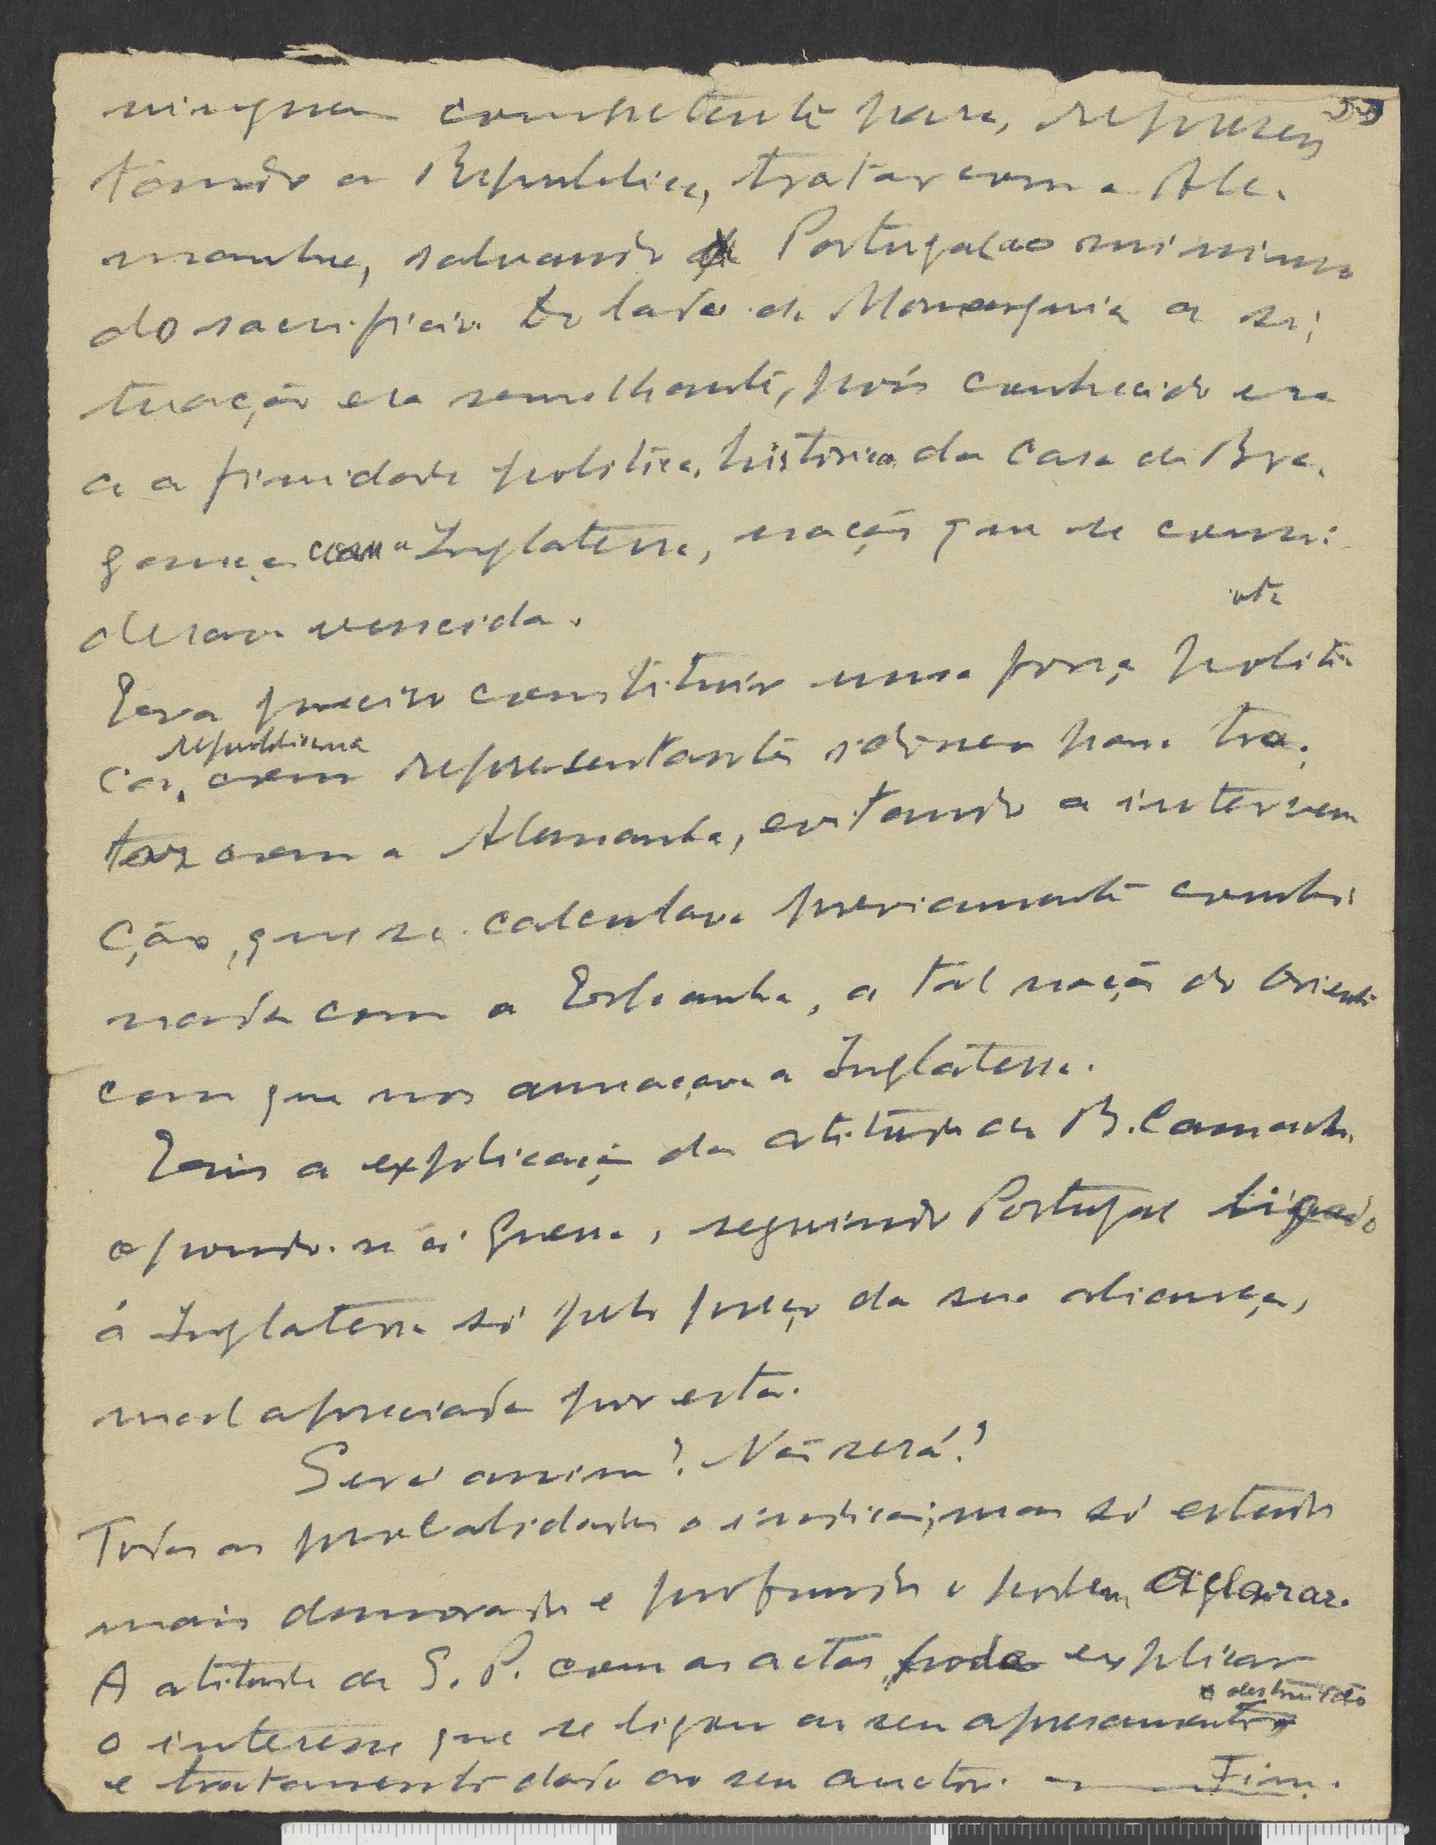 59
ninguem competente para, represen
tando a Republica, tratar com a Ale-
manha, salvando Portugal ao minimo
do sacrificio. Do lado da Monarquia a si-
tuação era semelhante, pois conhecida era
a afinidade politica, historica da Casa de Bra-
gança com a Inglaterra, nação que se consi-
derava vencida.
Era preciso constituir uma força politi-
ca, republicana com representante idoneo para tra-
tar com a Alemanha, evitando a interven
ção, que se calculava previamente combi
nada com a Espanha, a tal nação do Oriente
com que nos ameaçava a Inglaterra.
Eis a explicação da atitude de B. Camacho
opondo-se á Guerra, seguindo Portugal ligado
á Inglaterra só pelo preço da sua aliança,
mal apreciada por esta.
Será assim? Não será?
Todas as probalidades o indicam, mas só estudo
mais demorado e profundo o poderá aclarar.
A atitude de S. P. com as actas, pode explicar
o interesse que se ligou ao seu apresamento e destruição
e tratamento dado ao seu auctor. — Fim.